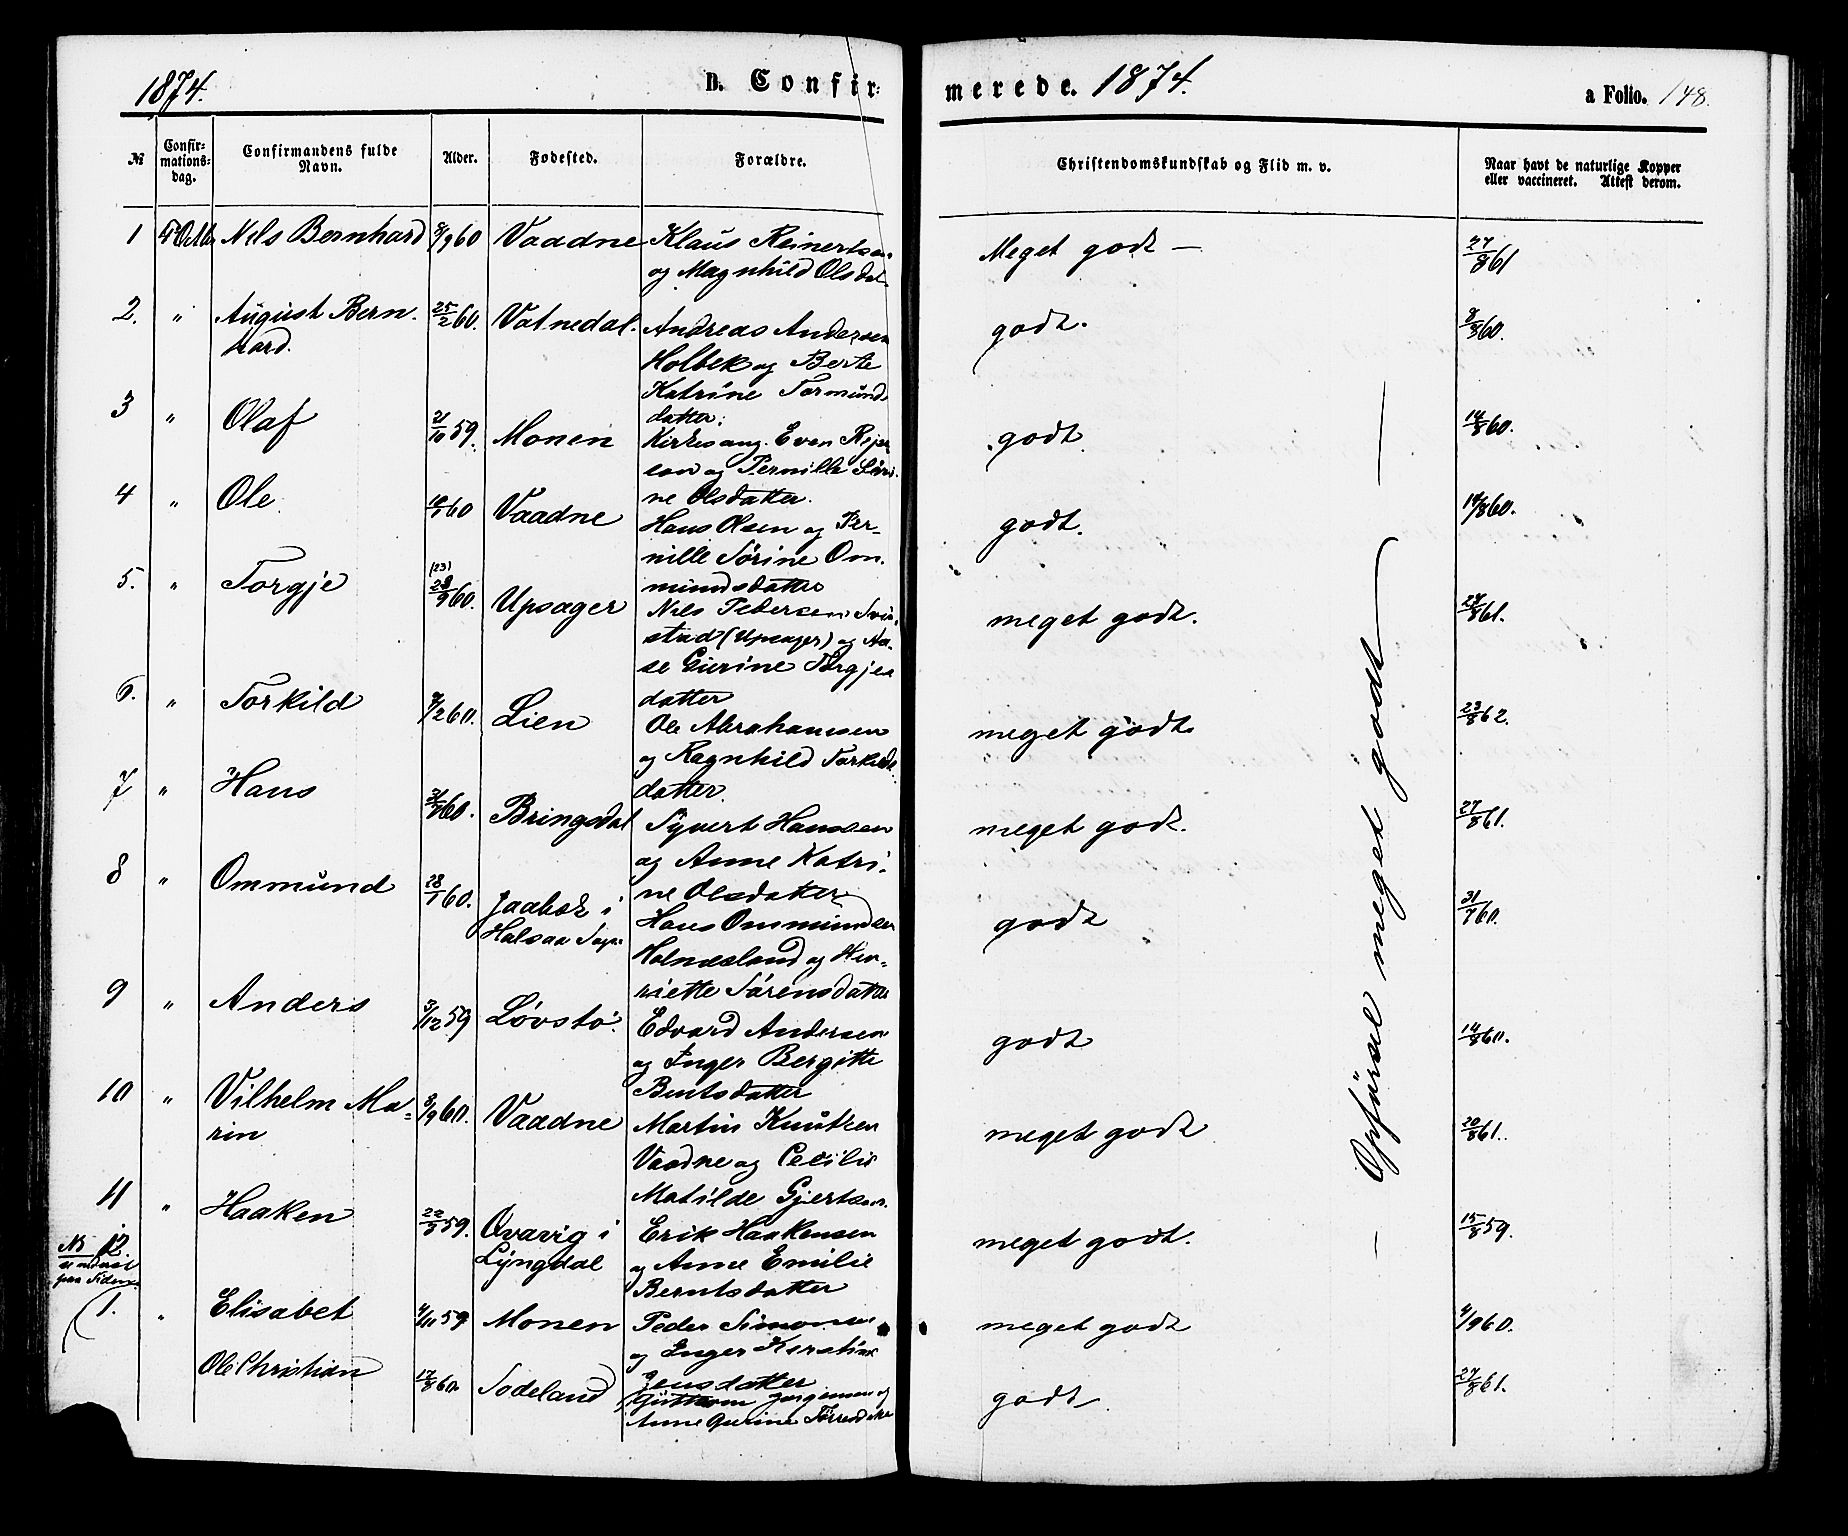 1874. D. Confir- merede. 1874. a Folio. 148.
№ Confir-mations-dag. Confirmandens fulde Navn. Alder. Fødested. Forældre. Christendomskundskab og Flid m. v. Naar havt de naturlige Kopper eller vaccineret. Attest derom.
1 Nels Bernhard 8/9 60 Vaadne Klaus Reinertsen Meget godt – 27/8 61
og Magnhild Olsdat.
2. " August Bern- 25/2 60. Vatnedal. Andreas Andersen godt. 8/8 60.
hard. Holbek og Berte
Katrine Tormunds
3 " Olaf 21/10 59. Monen datter.
Kirkesang. Even Rejer- godt 14/8 60.
sen og Pernille Séri-
4 " Ole 60 Vaadne ne Olsdatter.
Hans Olsen og Per- godt. 14/8 60.
nille Sörine Om-
5. " Torgje (23) 60. Upsager mundsdatter
Nils Pedersen meget godt. 61.
(Upsager) og Aa-
se Gurine Torgjes
6. " Torkild 60. Lien datter
Ole Abrahamsen meget godt 23/8 62.
og Ragnhild Torkilds
7 " Hans 60. Bringsdal datter.
Syvert Hansen meget godt. 27/8 61.
og Anne Katri-
8 " Ommund 28/ 60. Jaabek i ne Olsdatter
Halsaa Sogn Hans Ommundsen godt 31/7 60.
Holmesland og Hen-
9 " Anders 3/12 59 Lövstö. riette Sörensdatter
Edvard Andersen godt 14/8 60.
og Inger Bergitte
10 " Vilhelm Ma- 3/9 60. Vaadne Berntsdatter
rin Martin Knutsen meget godt 20/8 61.
Vaadne og Cecilie
Matilde Gjertsen.
11 " Haaken 22/ 59. Qvavig i Erik Haakensen meget godt. 15/8 59.
No 12. Lyngdal og Anne Emilie
se nederst
paa Siden Berntsdatter
1. " Elisabet 4/11 59 Monen Peder Simonsen meget godt 4/9 60.
og Inger Kirstine
Jensdatter
Ole Christian 17/8 60. Sodeland Guttorm Jørgensen og godt 27/8 61.
Anne Gurine
– Opförsel meget godt –